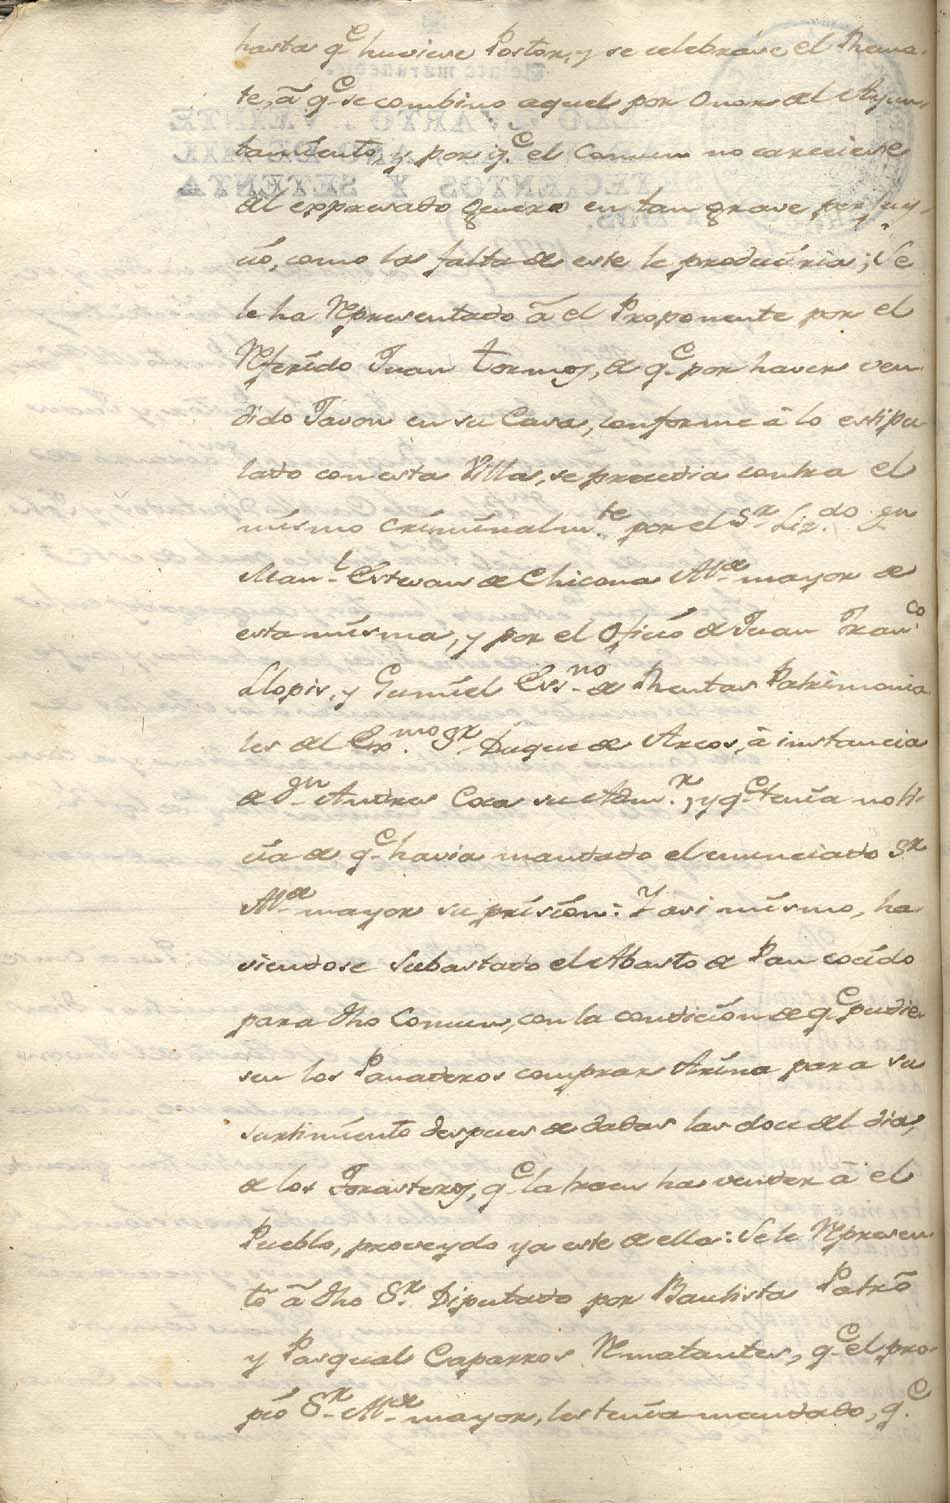 hasta q.e huviese Postor, y se celebráse el Rema-
te, â q.e se combino aquel por Onor del Ayun-
tamiento, y por q.e el Comun no careciese
del expresado genero en tan grave perjuy-
cio, como la falta de este le produciria; Se
le ha Representado â el Proponente por el
Referido Juan Tormos, de q.e por haver ven-
dido Javon en su Casa, conforme â lo estipu-
lado con esta Villa, se procedia contra el
mismo criminalm.te por el S.r Liz.do D.n
Man.l Estevan de Chicona Al.de mayor de
esta misma, y por el Oficio de Juan Fran.co
Llopis, y Gumiel Ess.no de Rentas Patrimonia-
les del Exmo. S.r Duque de Arcos, â instancia
de D.n Andres Coca su Adm.r, y q.e tenia noti-
cia de q.e havia mandado el enunciado S.r
Al.de mayor su prision: Y asi mismo, ha-
viendose subastado el Abasto de Pan cocido
para dho Comun, con la condicion de q.e pudie-
sen los Panaderos comprar Arina para su
surtimiento despues de dadas las doce del dia,
de los Forasteros, q.e la traen ha vender â el
Pueblo, proveydo ya este de ella: Se le Represen-
tô â dho S.r Diputado por Bautista Patrô
y Pasqual Caparros Rematantes, q.e el pro-
pio S.r Al.de mayor, les tenia mandado, q.e